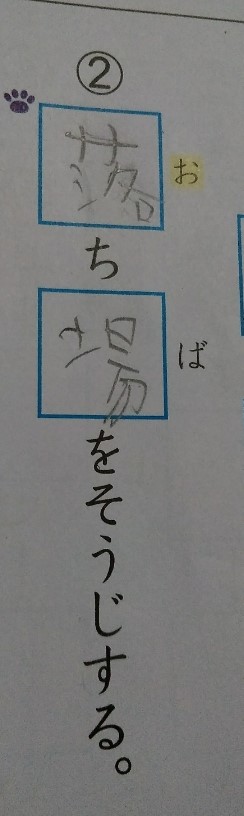 ②
落ち場をそうじする。
お
ば